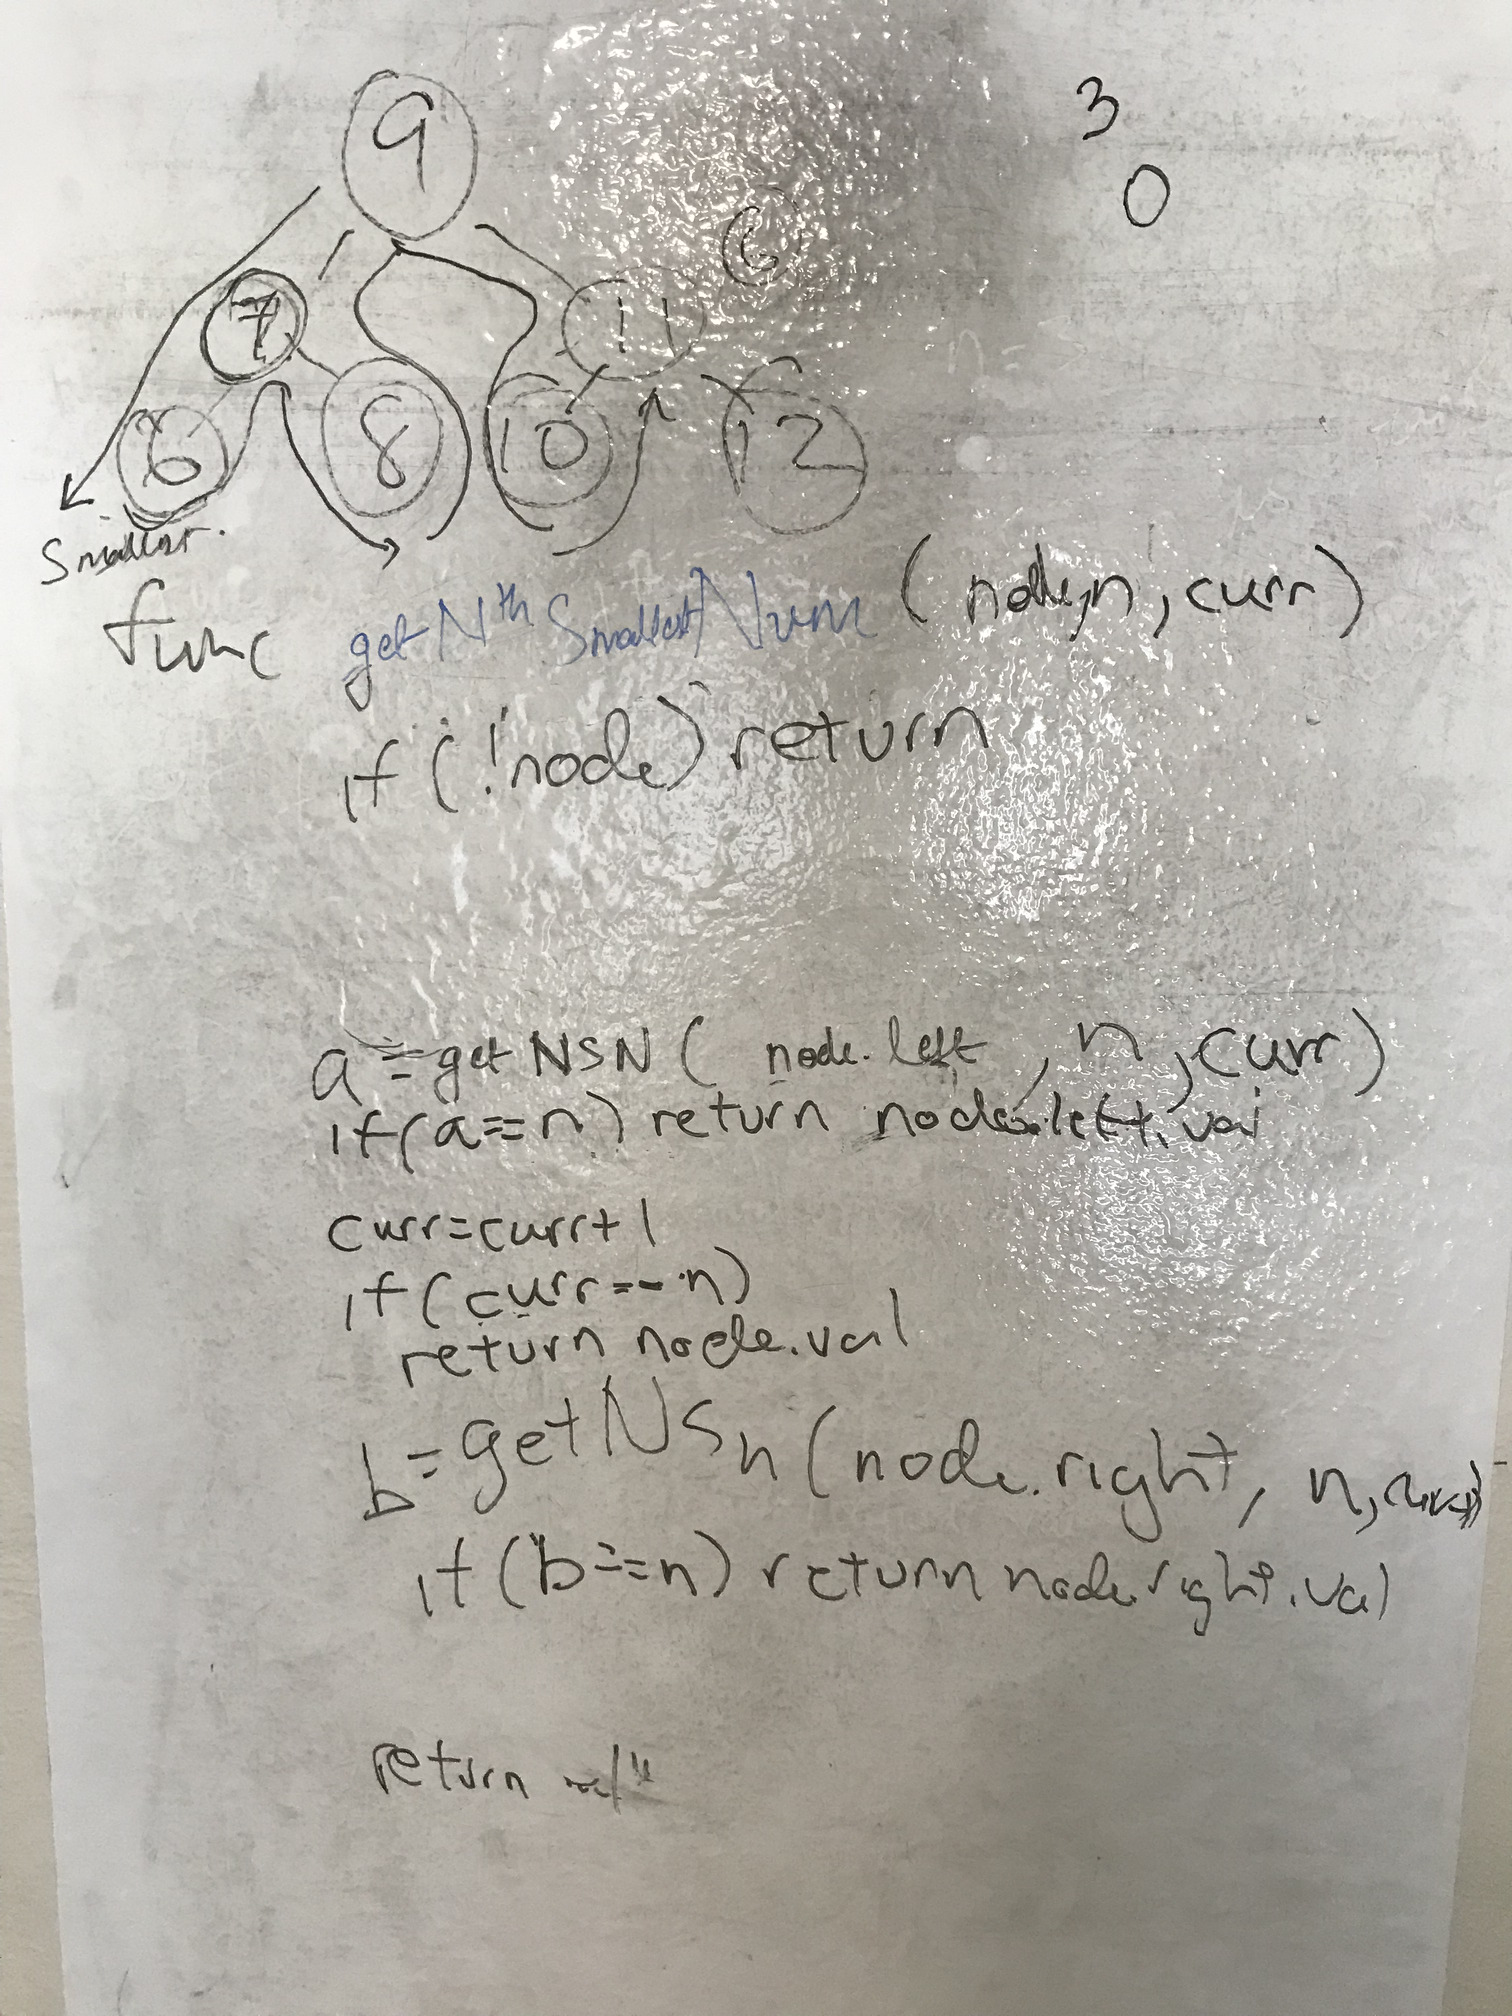 3
0
9
6
7
11
6
8
10
12
Smallest.
func getNth SmallestNum (node, n, curr)
if (!node) return
a = getNSN( node.left , n, curr)
if(a==n) return node.left.val
curr=curr+1
if(curr==n)
return node.val
b=getNSn(node.right, n, curr)
if(b==n) return node.right.val
return